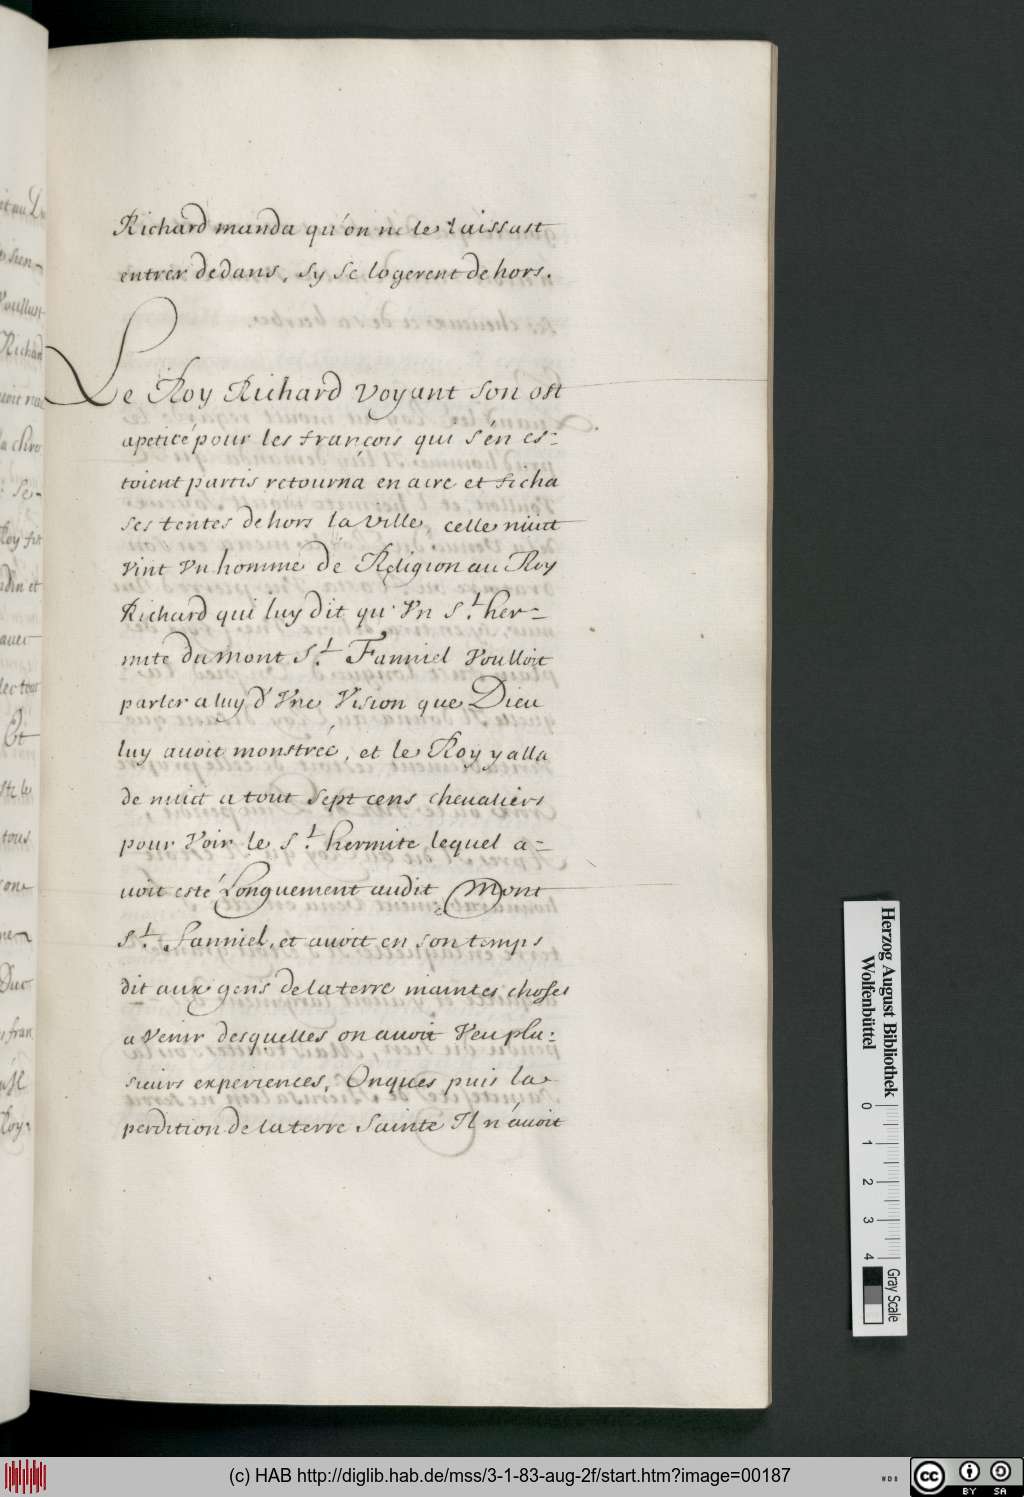 Richard manda qu'on ne le laissast
entrer dedans, sy se logerent dehors.
Le Roy Richard voyant son ost
apeticé pour les françois qui s'én es=
toient partis retourná en acre et ficha
ses tentes dehors la ville, celle nuict
vint vn homme de Religion au Roy
Richard qui luy dit qu'vn S.t her=
mite du mont S.t Fanniel voulloit
parler a luy d'vne vision que Dieu
luy auoit monstréé, et le Roy y alla
de nuict a tout sept cens cheualiers
pour voir le S.t hermite lequel a=
uoit esté Longuement audit Mont
S.t Fanniel, et auoit en son temps
dit aux gens de la terre maintes choses
a venir desquelles on auoit veu plu=
sieurs experiences, Onques puis la
perdition de la terre Sainte Il n'auoit
Herzog August Bibliothek
Wolfenbüttel
0 1 2 3 4
Gray Scale
(c) HAB http://diglib.hab.de/mss/3-1-83-aug-2f/start.htm?image=00187
WDB
cc BY SA